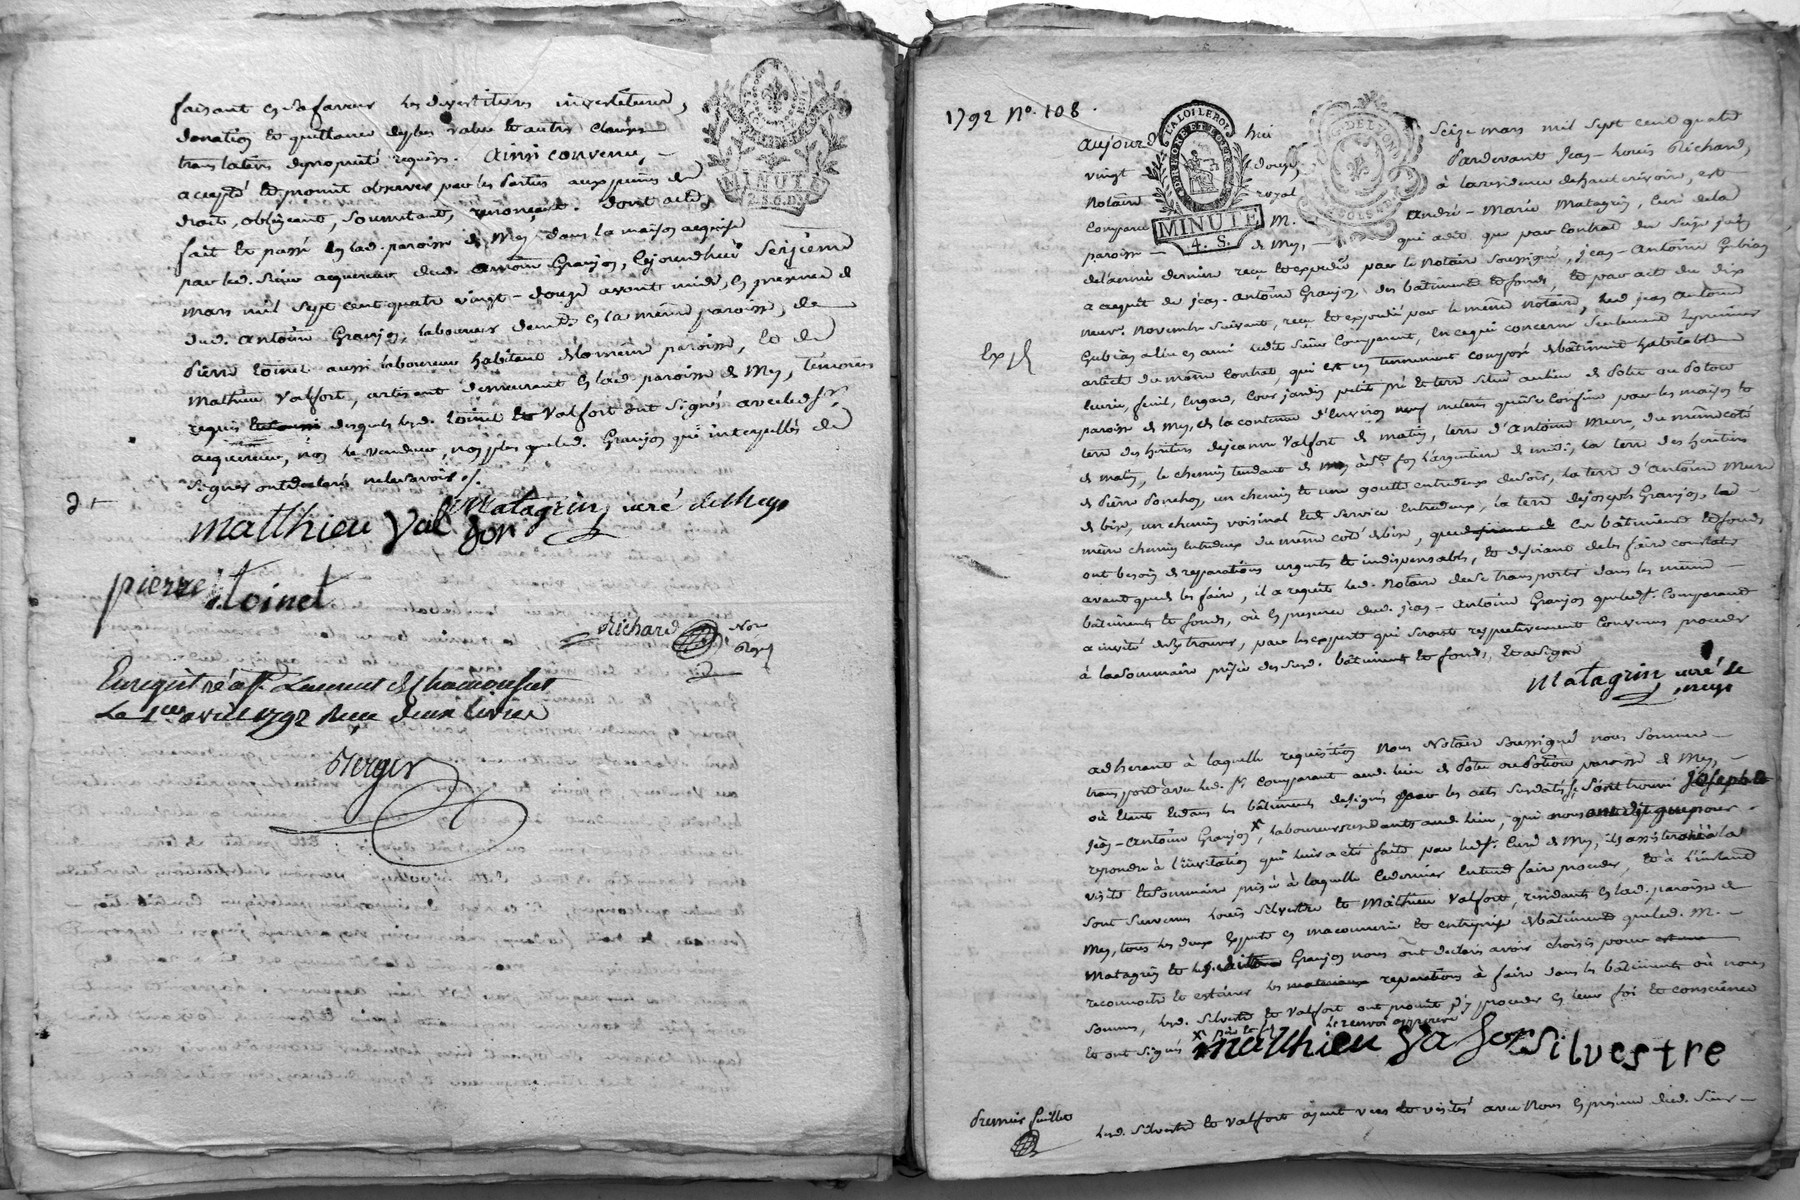 faisant en sa faveur les devestitures investitures,
donation et quittance de plus value et autres clauses
translatives de propriété requises. Ainsi convenu,
accepté et promit observer par les parties aux peines de
droit, obligeant, soumettant, renonceant. dont acte,
fait et passé en lad. paroisse de Meys dans la maison acquise
par led. sieur acquereur dud. Antoine Granjon, cejourdhui seizieme
mars mil sept cent quatre vingt-douze avant midi, en presence de
dud. Antoine Granjon, laboureur demt. en la même paroisse, de
Pierre Toinet aussi laboureur habitant de la même paroisse, et de
Mathieu Valfort, artisant demeurant en lad. paroisse de Meys, temoins
requis desquels led. Toinet et Valfort ont signés avec led. Sr.
acquereur, non le vendeur, non plus que led. Granjon qui interpellés de
signer ont déclaré ne le savoir /.
Matagrin curé de Meys
matthieu Valfor
pierre toinet
Richard Not. Royal
Enregistré à St. Laurent de Chamousset
Le 1er avril 1792 Reçu deux livres
Berger
MINUTE
1792 No. 108.
LA LOI LE ROI
MINUTE
4. S.
G. DE LYON
Aujourd hui seize mars mil sept cent quatre
vingt douze, Pardevant Jean-Louis Richard,
Notaire royal à la residence de hauterivoire, est
comparu M. André-Marie Matagrin, curé de la
paroisse de Meys, qui a dit que par contrat du seize juin
de l'année dernière reçu et expedié par le Notaire soussigné, Jean-Antoine Gubian
a acquit de Jean-Antoine Granjon, des bâtiments et fonds, et par acte du dix
neuf novembre suivant, reçu et expedié par le même notaire, led. Jean Antoine
Gubian a élu en ami ledit sieur comparant, en ce qui concerne seulement le premier
article du même contrat, qui est un tennement composé de bâtiment habitable
Exp
ecurie, fenil, hangard, cour, jardin, petit pré et terre situé au lieu de
paroisse de Meys, de la contenue d'environ neuf meterées qui se confine par les maison et
terre des héritiers de Jeanne Valfort de matin, terre d'Antoine Mure, du même coté
de matin, le chemin tendant de Meys à St. foy l'argentière de midi, la terre des héritiers
de Pierre Ponchon, un chemin et une goutte entredeux de soir, la terre d'Antoine Mure
de bise, un chemin voisinal et de service entredeux, la terre de Joseph Granjon, led.
même chemin entredeux du même coté de bise, que ces bâtiments et fonds
ont besoin de reparations urgentes et indispensables, et desirant de les faire constater
avant que de les faire, il a requis led. Notaire de se transporter dans les même
bâtiments et fonds, où en presence dud. Jean-Antoine Granjon que led. Sr. Comparant
a invité de s'y trouver, par les experts qui seront respectivement convenus proceder
à la sommaire prisée desusd. bâtiments et fonds, et a signé
Matagrin curé de meys
adherant à laquelle requisition Nous Notaire soussigné nous sommes
transporté avec led. Sr. comparant aud. lieu de paroisse de Meys,
où étant et dans les bâtiments designés par les acts susdatés, s'est trouvé
Jean-Antoine Granjon x laboureur, qui nous
repondre à l'invitation qui leur a été faite par led. Sr. curé de Meys, ils assisteront à la
visite et sommaire prisée à laquelle ce dernier entend faire proceder, et à l'instant
sont survenus Louis Silvestre et Mathieu Valfort, résidants en lad. paroisse de
Meys, tous les deux experts en maçonnerie et entreprise de bâtiments que led. M.
Matagrin et led. Granjon nous ont declaré avoir choisis pour
reconnoître et estimer les reparations à faire dans les bâtiments où nous
sommes, lesd. Silvestre et Valfort ont promit d'y proceder en leur foi et conscience
et ont signés le renvoi approuvé
Matthieu Valfor Silvestre
Premier feuillet
lesd. Silvestre et Valfort ayant vues et visités avec Nous en presence dud. sieur